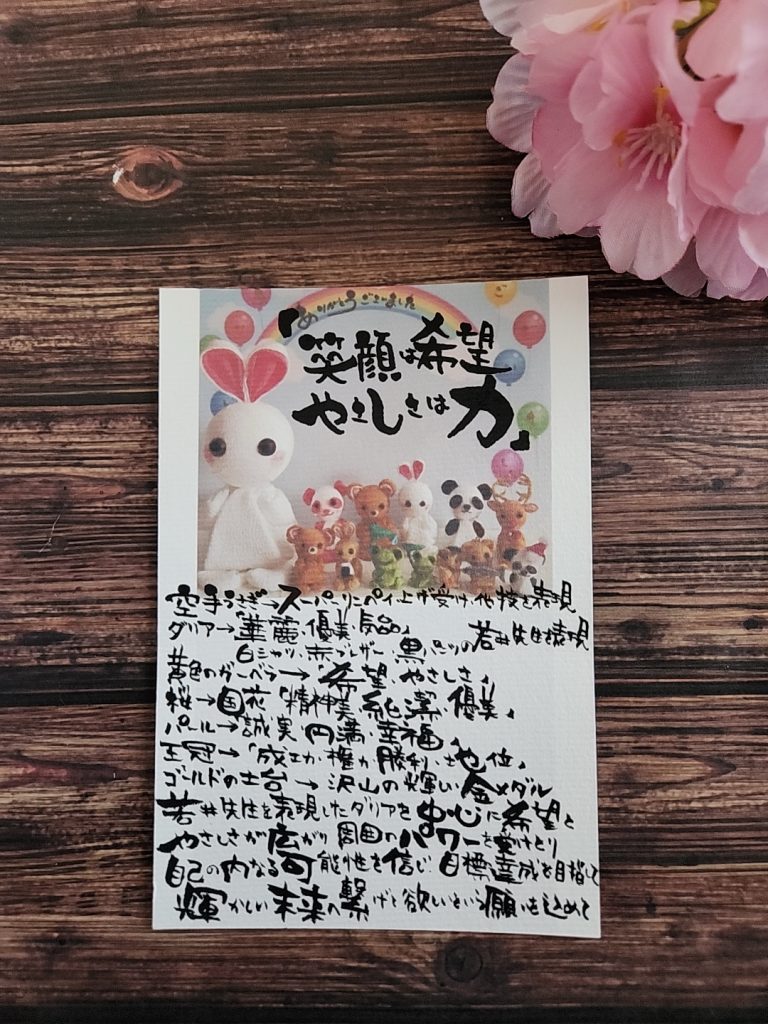 ありがとうございました
「笑顔は希望
やさしさは力」
空手うさぎ→スーパーリンペイ上げ受け他技を表現
ダリア→「華麗・優美・気品」
白シャツ 赤ブレザー 黒パンツの若井先生表現
黄色のガーベラ→「希望・やさしさ」
桜→国花「精神美・純潔・優美」
パール→「誠実・円満・幸福」
王冠→「成功・権力・勝利・地位」
ゴールドの土台→沢山の輝い金メダル
若井先生を表現したダリアを中心に希望と
やさしさが広がり周囲のパワーを受けとり
自己の内なる可能性を信じ目標達成を目指して
輝かしい未来へ繋げて欲しいという願いを込めて